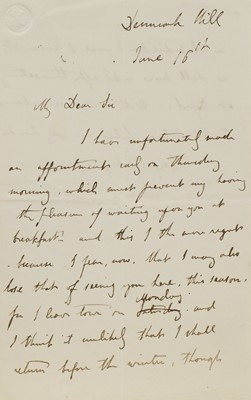 Denmark Hill
June 15th
My Dear Sir
I have unfortunately made
an appointment early on Thursday
morning, which must prevent my having
the pleasure of waiting upon you at
breakfast: and this I the more regret
because I fear, now, that I may also
lose that of seeing you here, this season,
for I leave town on Saturday Monday, and
I think it unlikely that I shall
return before the winter, though